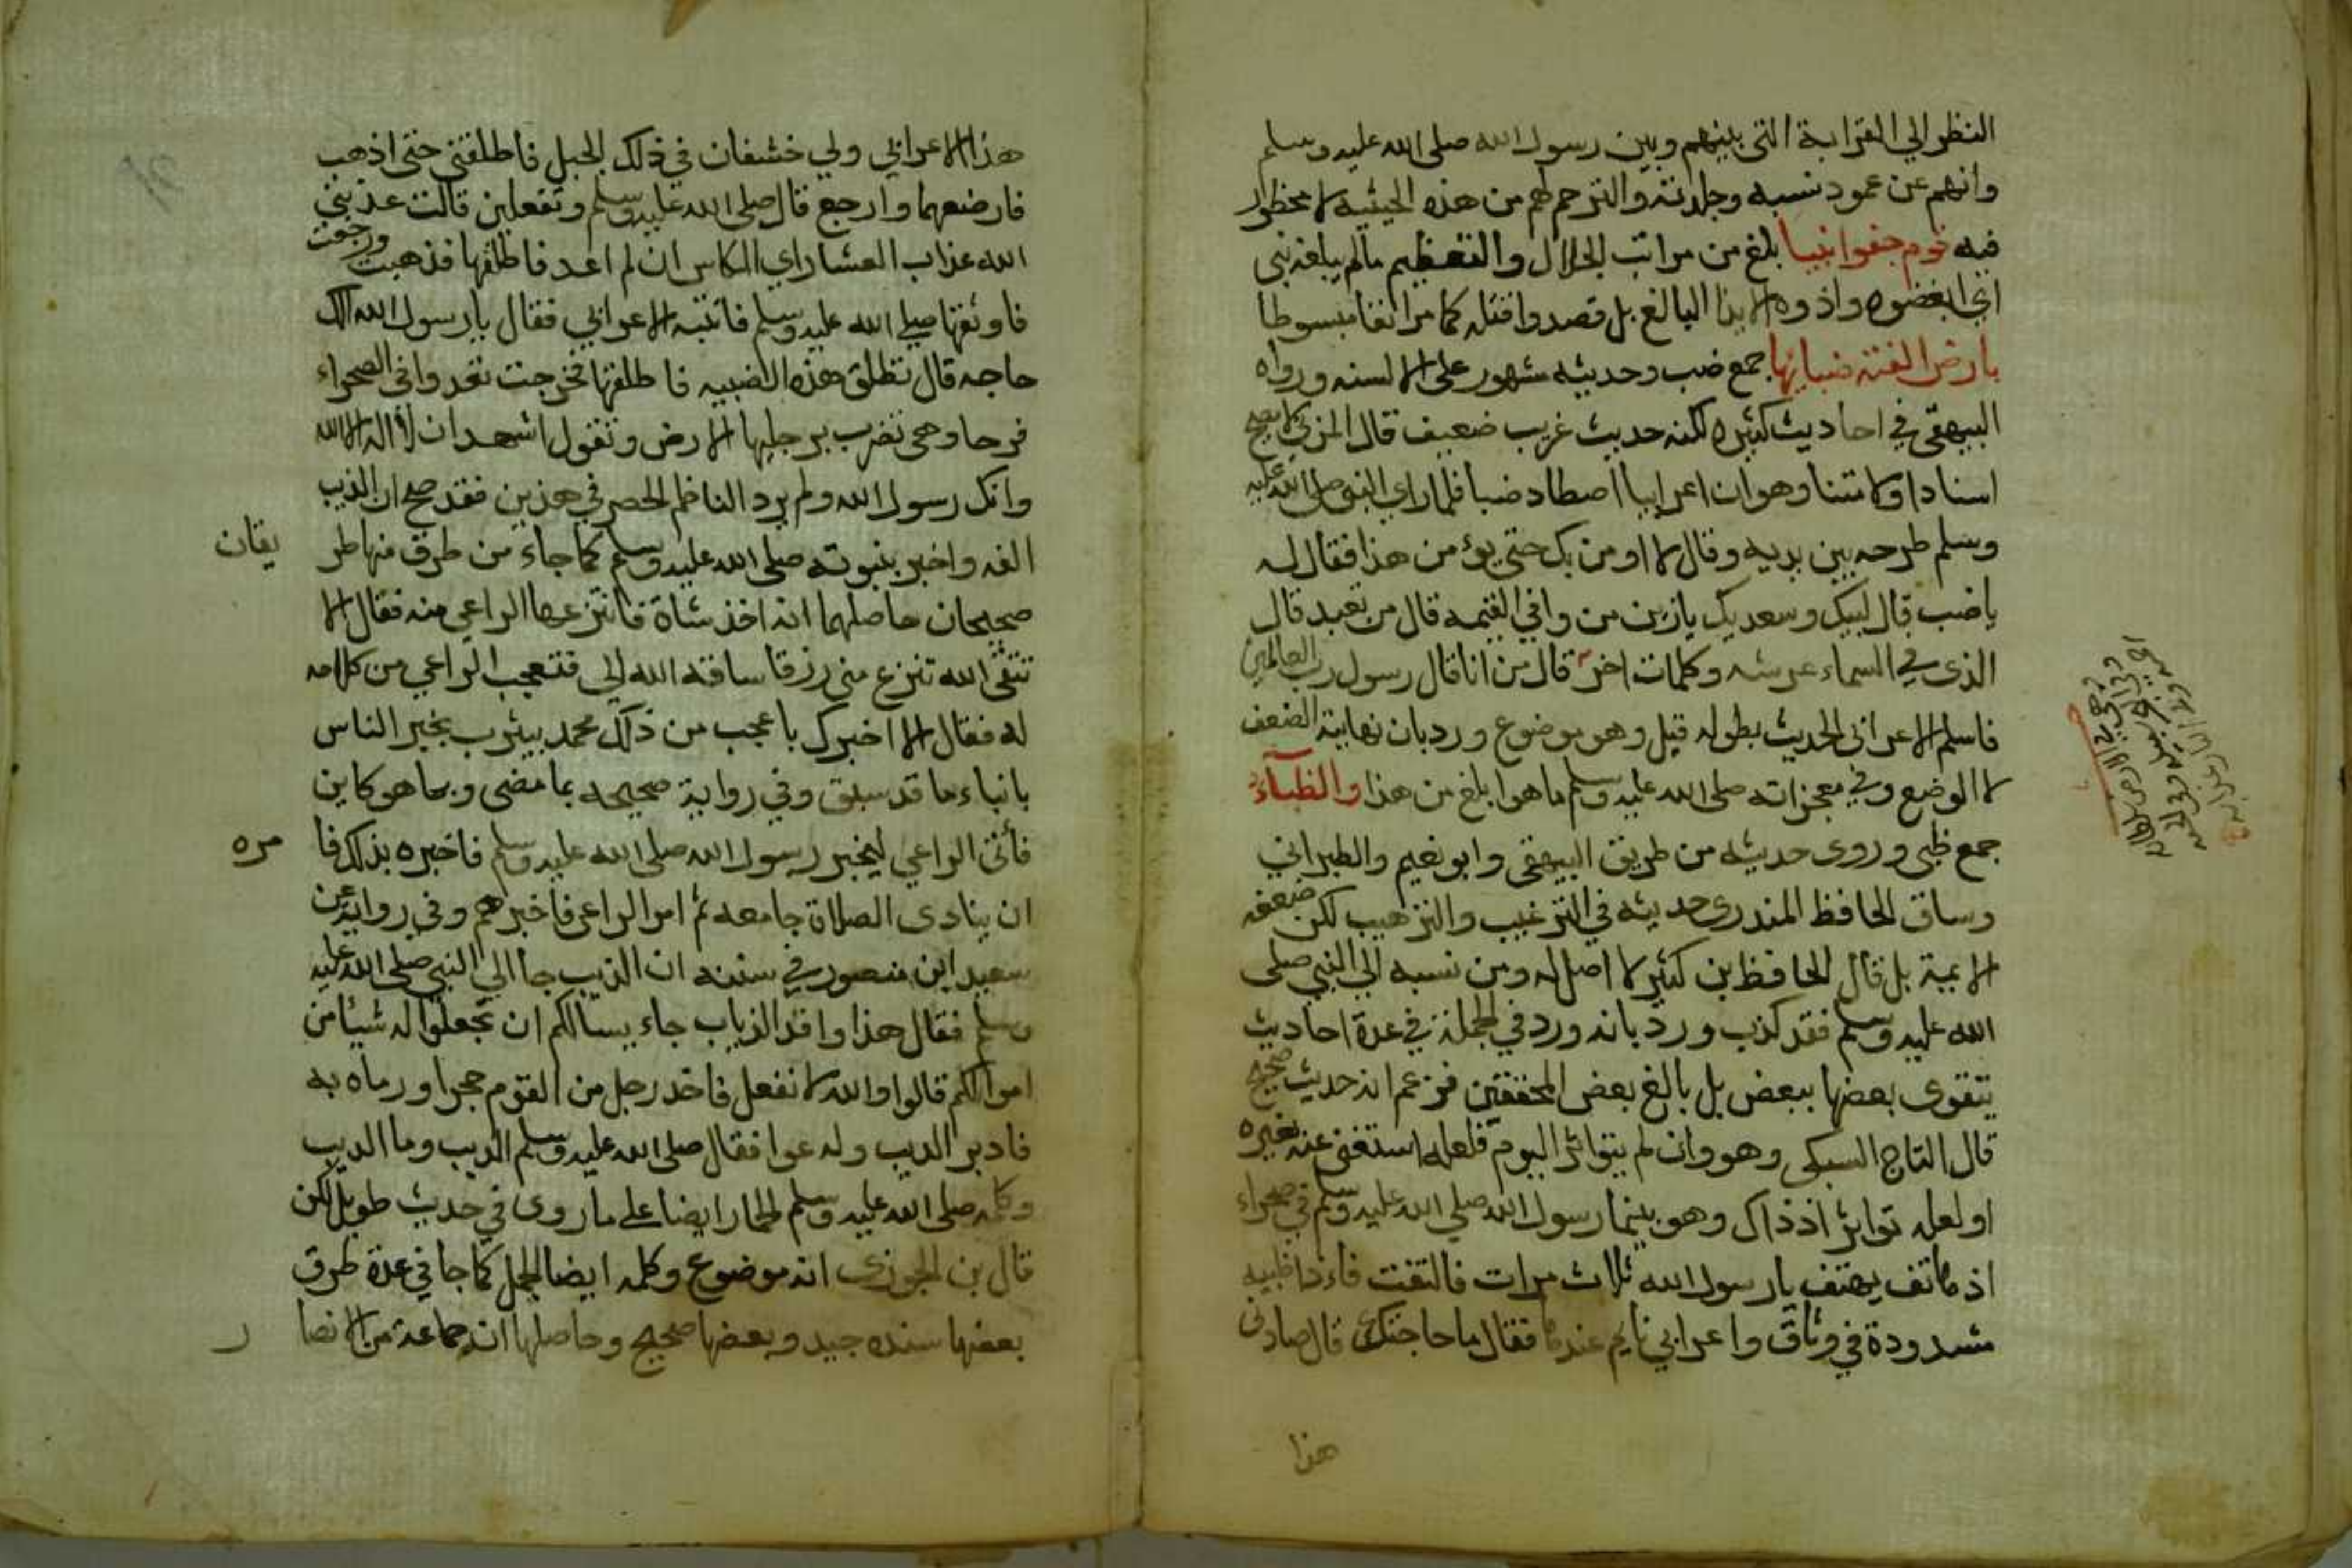 النظر الي القرابة التى بينهم وبين رسول الله صلى الله عليه وسلم
وانهم عن عمود نسبه وجلدته والترحم لهم من هذه الحيثية لا محظور
فيه قوم جفوا نبيا بلغ من مراتب الجلال والتعظيم مالم يبلغه نبى
اي ابغضوه واذوه الايذا البالغ بل قصدوا قتله كما مر انفا مبسوطا
بارض الفته ضبابها جمع ضب وحديثه مشهور على الالسنه ورواه
البيهقى في احاديث كثيره لكنه حديث غريب ضعيف قال المزي لا يصح
اسنادا ولا متنا وهو ان اعرابيا اصطاد ضبا فلما راي النبى صلى الله عليه
وسلم طرحه بين يديه وقال لا اومن بك حتى يؤمن هذا فقال له
ياضب قال لبيك وسعديك يازين من وافي القيمه قال من تعبد قال
الذى في السماء عرشه وكلمات اخر قال من انا قال رسول رب العالمين
فاسلم الاعرابى الحديث بطوله قيل وهو موضوع ورد بان نهايته الضعف
لا الوضع وفي معجزاته صلى الله عليه وسلم ما هوا بلغ من هذا والظباء
جمع ظبى وروى حديثه من طريق البيهقى وابو نعيم والطبراني
وساق الحافظ المندرى حديثه في الترغيب والترهيب لكن ضعفه
الايمية بل قال الحافظ بن كثير لا اصل له ومن نسبه الى النبي صلى
الله عليه وسلم فقد كذب ورد بانه ورد في الجملة في عدة احاديث
يتقوى بعضها ببعض بل بالغ بعض المحققين فزعم انه حديث صحيح
قال التاج السبكى وهو وان لم يتواتر اليوم فلعله استغنى عنه بغيره
او لعله تواتر اذ ذاك وهو بينما رسول الله صلي الله عليه وسلم في صحراء
اذ هاتف يهتف يا رسول الله ثلاث مرات فالتفت فاءذا ظبيه
مشدودة في وثاق واعرابي نايم عندها فقال ما حاجتك قال صادنى
هذا
هذا الاعرابي ولي خشفان في ذلك الجبل فاطلقني حتى اذهب
فارضعهما وارجع قال صلى الله عليه وسلم وتفعلين قالت عذبني
الله عذاب العشار اي المكاس ان لم اعد فاطلقها فذهبت ورجعت
فاوثقها صلي الله عليه وسلم فانتبه الاعرابي فقال يارسول الله الك
حاجه قال تطلق هذه الضبيه فاطلقها فخرجت تعدوا في الصحراء
فرحا وهى تضرب برجليها الارض وتقول اشهد ان لا اله الا الله
وانك رسول الله ولم يرد الناظم الحصر في هذين فقد صح ان الذيب
الفه واخبر بنبوته صلى الله عليه وسلم كما جاء من طرق منها طر يقان
صحيحان حاصلهما انه اخذ شاة فانتزعها الراعي منه فقال الا
تتقى الله تنزع منى رزقا ساقه الله الى فتعجب الراعي من كلامه
له فقال الا اخبرك باعجب من ذلك محمد بيثرب يخبر الناس
بانباء ما قد سبق وفي رواية صحيحه بما مضى وبما هو كاين
فأتى الراعي ليخبر رسول الله صلى الله عليه وسلم فاخبره بذلك فا مره
ان ينادى الصلاة جامعه ثم امر الراعى فاخبرهم وفي رواية عن
سعيد ابن منصور في سننه ان الذيب جا الي النبي صلى الله عليه
وسلم فقال هذا وافد الذياب جاء يسالكم ان تجعلوا له شيئا من
اموالكم قالوا والله لا نفعل فاخد رجل من القوم حجرا ورماه به
فادبر الديب وله عوا فقال صلى الله عليه وسلم الديب وما الديب
وكلمه صلى الله عليه وسلم الحمار ايضا على ما روى في حديث طويل لكن
قال بن الجوزى انه موضوع وكلمه ايضا الجمل كما جا في عدة طرق
بعضها سنده جيد وبعضها صحيح وحاصلها ان جماعة من الانصا ر